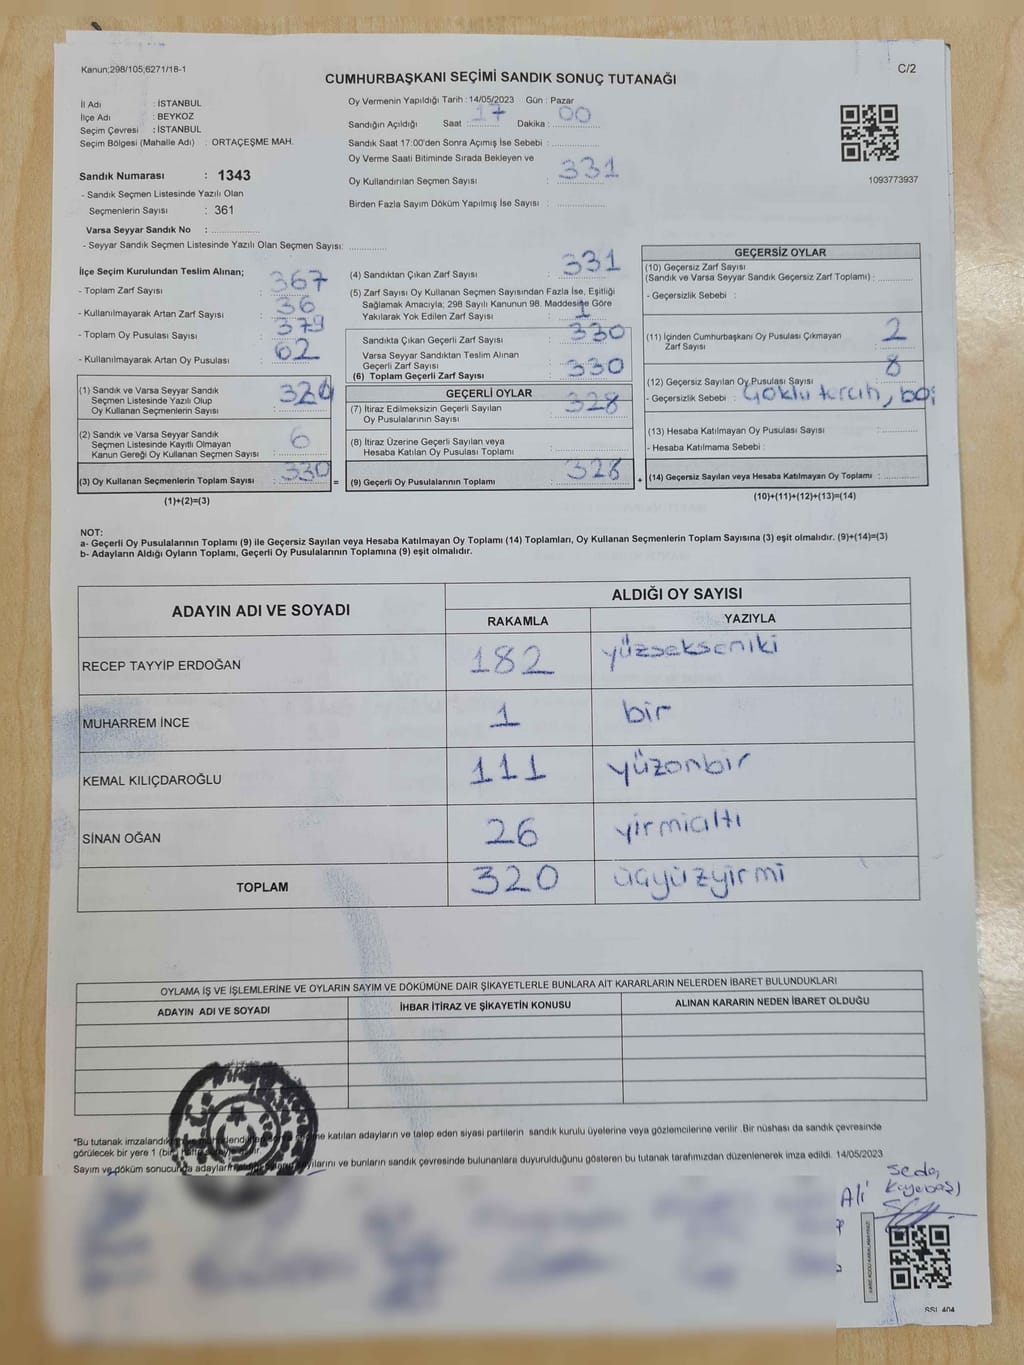 Kanun;298/105;6271/18-1
C/2
CUMHURBAŞKANI SEÇİMİ SANDIK SONUÇ TUTANAĞI
İl Adı : İSTANBUL
İlçe Adı : BEYKOZ
Seçim Çevresi : İSTANBUL
Seçim Bölgesi (Mahalle Adı) : ORTAÇEŞME MAH.
Sandık Numarası : 1343
- Sandık Seçmen Listesinde Yazılı Olan
Seçmenlerin Sayısı : 361
Varsa Seyyar Sandık No :
- Seyyar Sandık Seçmen Listesinde Yazılı Olan Seçmen Sayısı:
Oy Vermenin Yapıldığı Tarih : 14/05/2023 Gün : Pazar
Sandığın Açıldığı Saat : 17 Dakika : 00
Sandık Saat 17:00'den Sonra Açımış İse Sebebi :
Oy Verme Saati Bitiminde Sırada Bekleyen ve
Oy Kullandırılan Seçmen Sayısı : 331
Birden Fazla Sayım Döküm Yapılmış İse Sayısı :
1093773937
İlçe Seçim Kurulundan Teslim Alınan;
- Toplam Zarf Sayısı : 367
- Kullanılmayarak Artan Zarf Sayısı : 36
- Toplam Oy Pusulası Sayısı : 379
- Kullanılmayarak Artan Oy Pusulası : 62
(1) Sandık ve Varsa Seyyar Sandık
Seçmen Listesinde Yazılı Olup
Oy Kullanan Seçmenlerin Sayısı : 324
(2) Sandık ve Varsa Seyyar Sandık
Seçmen Listesinde Kayıtlı Olmayan
Kanun Gereği Oy Kullanan Seçmen Sayısı : 6
(3) Oy Kullanan Seçmenlerin Toplam Sayısı : 330 =
(1)+(2)=(3)
(4) Sandıktan Çıkan Zarf Sayısı : 331
(5) Zarf Sayısı Oy Kullanan Seçmen Sayısından Fazla İse, Eşitliği
Sağlamak Amacıyla; 298 Sayılı Kanunun 98. Maddesine Göre
Yakılarak Yok Edilen Zarf Sayısı : 1
Sandıkta Çıkan Geçerli Zarf Sayısı : 330
Varsa Seyyar Sandıktan Teslim Alınan
Geçerli Zarf Sayısı :
(6) Toplam Geçerli Zarf Sayısı : 330
GEÇERLİ OYLAR
(7) İtiraz Edilmeksizin Geçerli Sayılan
Oy Pusulalarının Sayısı : 328
(8) İtiraz Üzerine Geçerli Sayılan veya
Hesaba Katılan Oy Pusulası Toplamı :
(9) Geçerli Oy Pusulalarının Toplamı : 328 +
GEÇERSİZ OYLAR
(10) Geçersiz Zarf Sayısı
(Sandık ve Varsa Seyyar Sandık Geçersiz Zarf Toplamı) :
- Geçersizlik Sebebi :
(11) İçinden Cumhurbaşkanı Oy Pusulası Çıkmayan
Zarf Sayısı : 2
(12) Geçersiz Sayılan Oy Pusulası Sayısı : 8
- Geçersizlik Sebebi : Çoklu tercih, boş
(13) Hesaba Katılmayan Oy Pusulası Sayısı :
- Hesaba Katılmama Sebebi :
(14) Geçersiz Sayılan veya Hesaba Katılmayan Oy Toplamı :
(10)+(11)+(12)+(13)=(14)
NOT:
a- Geçerli Oy Pusulalarının Toplamı (9) ile Geçersiz Sayılan veya Hesaba Katılmayan Oy Toplamı (14) Toplamları, Oy Kullanan Seçmenlerin Toplam Sayısına (3) eşit olmalıdır. (9)+(14)=(3)
b- Adayların Aldığı Oyların Toplamı, Geçerli Oy Pusulalarının Toplamına (9) eşit olmalıdır.
ADAYIN ADI VE SOYADI ALDIĞI OY SAYISI
RAKAMLA YAZIYLA
RECEP TAYYİP ERDOĞAN 182 yüzsekseniki
MUHARREM İNCE 1 bir
KEMAL KILIÇDAROĞLU 111 yüzonbir
SİNAN OĞAN 26 yirmialtı
TOPLAM 320 üçyüzyirmi
OYLAMA İŞ VE İŞLEMLERİNE VE OYLARIN SAYIM VE DÖKÜMÜNE DAİR ŞİKAYETLERLE BUNLARA AİT KARARLARIN NELERDEN İBARET BULUNDUKLARI
ADAYIN ADI VE SOYADI İHBAR İTİRAZ VE ŞİKAYETİN KONUSU ALINAN KARARIN NEDEN İBARET OLDUĞU
*Bu tutanak imzalandık katılan adayların ve talep eden siyasi partilerin sandık kurulu üyelerine veya gözlemcilerine verilir. Bir nüshası da sandık çevresinde
görülecek bir yere 1 (bir)
Sayım ve döküm sonucunda adayların ve bunların sandık çevresinde bulunanlara duyurulduğunu gösteren bu tutanak tarafımızdan düzenlenerek imza edildi. 14/05/2023
Ali Seda
Kayabaşı